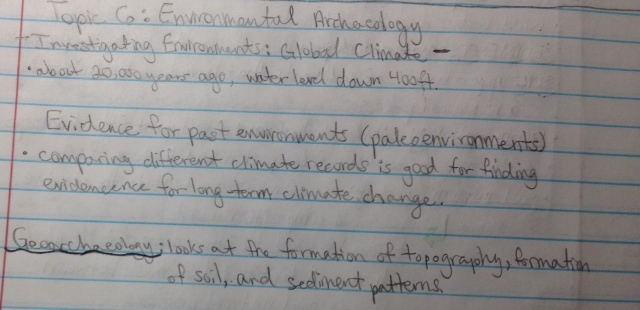 Topic 6: Environmental Archaeology
- Investigating Environments: Global Climate -
• about 20,000 years ago, water level down 400ft.
Evidence for past environments (paleoenvironments)
• comparing different climate records is good for finding
evidencence for long-term climate change.
Geoarchaeology: looks at the formation of topography, formation
of soil, and sediment patterns